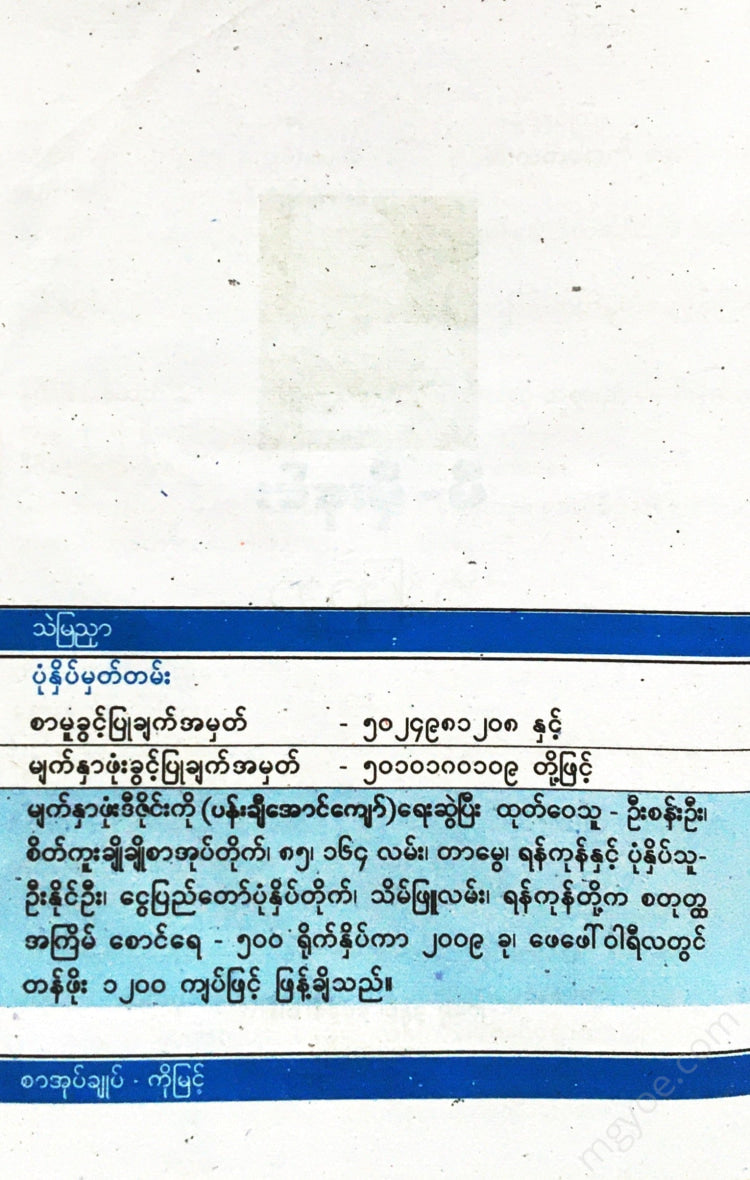 သဲမြညှာ
ပုံနှိပ်မှတ်တမ်း
စာမူခွင့်ပြုချက်အမှတ် - ၅၀၂၄၉၈၁၂၀၈ နှင့်
မျက်နှာဖုံးခွင့်ပြုချက်အမှတ် - ၅၀၁၀၁၈၀၁၀၉ တို့ဖြင့်
မျက်နှာဖုံးဒီဇိုင်းကို (ပန်းချီအောင်ကျော်)ရေးဆွဲပြီး ထုတ်ဝေသူ - ဦးစန်းဦး၊
စိတ်ကူးချိုချိုစာအုပ်တိုက်၊ ၈၅၊ ၁၆၄ လမ်း၊ တာမွေ၊ ရန်ကုန်နှင့် ပုံနှိပ်သူ-
ဦးနိုင်ဦး၊ ငွေပြည်တော်ပုံနှိပ်တိုက်၊ သိမ်ဖြူလမ်း၊ ရန်ကုန်တို့က စတုတ္ထ
အကြိမ် စောင်ရေ - ၅၀၀ ရိုက်နှိပ်ကာ ၂၀၀၉ ခု၊ ဖေဖေါ်ဝါရီလတွင်
တန်ဖိုး ၁၂၀၀ ကျပ်ဖြင့် ဖြန့်ချိသည်။
စာအုပ်ချုပ် - ကိုမြင့်
mgyoe.com